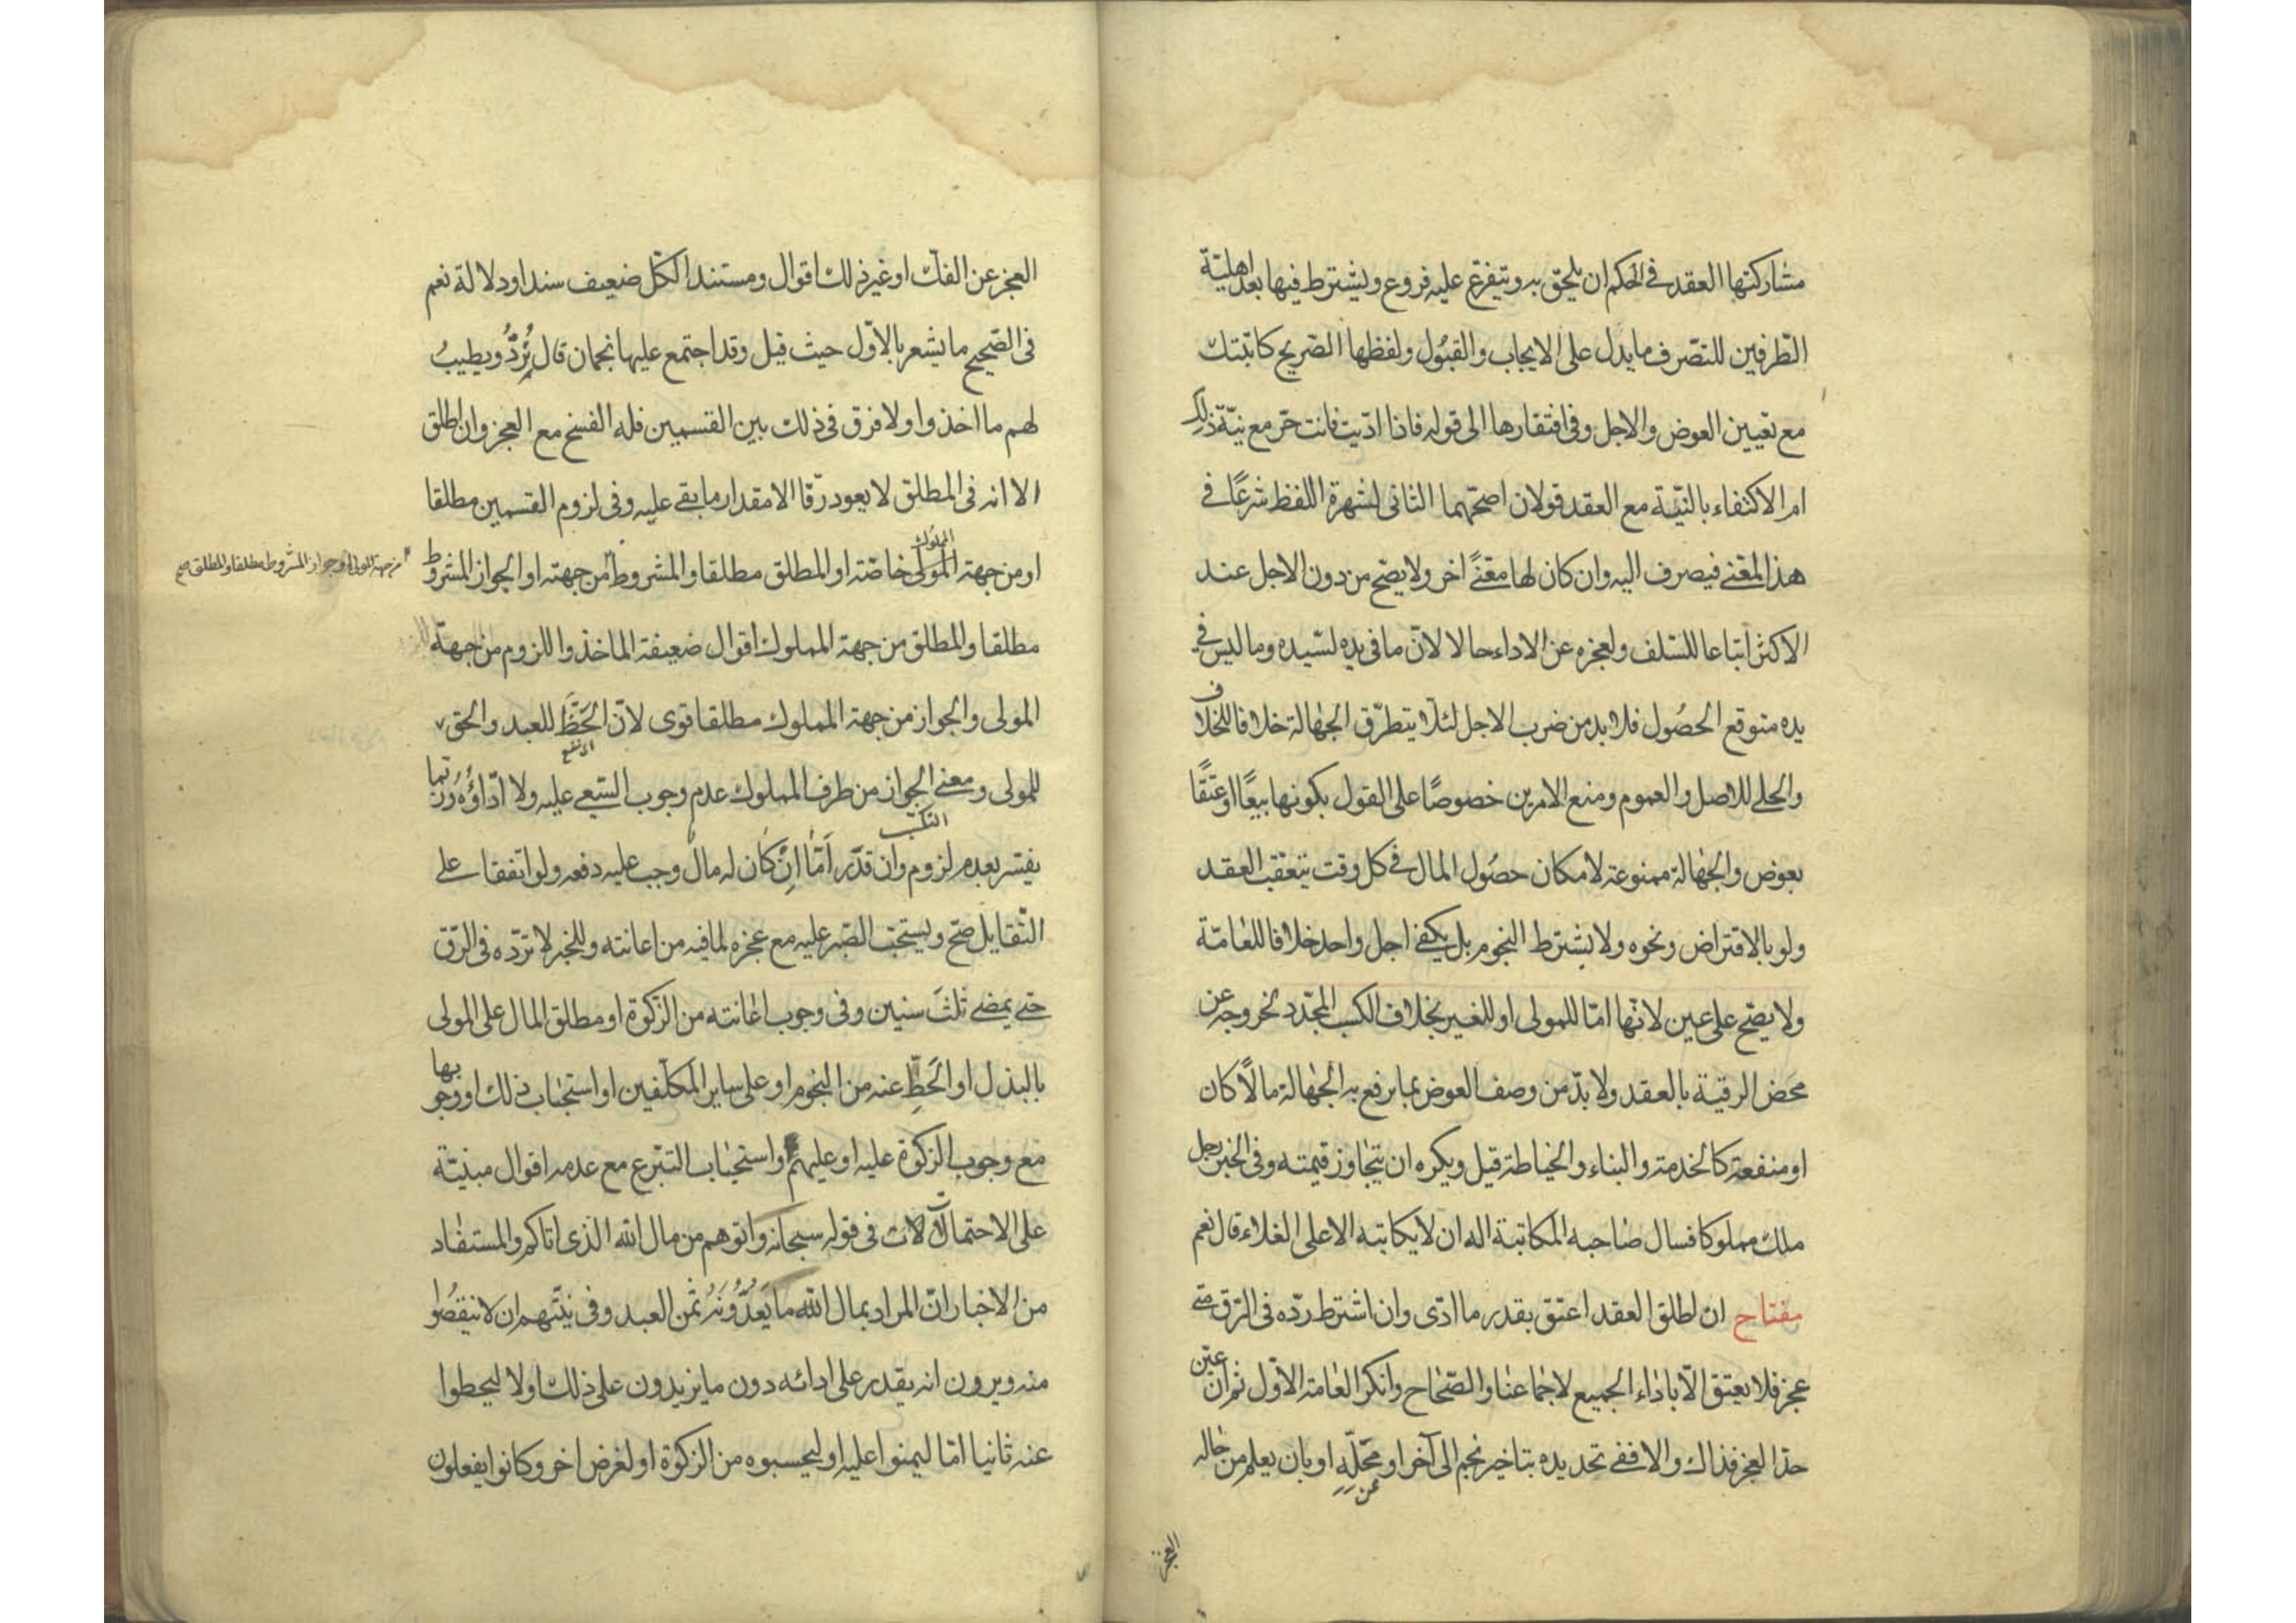 مشاركتها العقد في الحكم ان يلحق به ويتفرع عليه فروع ويشترط فيها بعد اهليّة
الطّرفين للتصّرف ما يدل على الايجاب والقبُول ولفظها الصّريح كاتبتك
مع تعيين العوض والاجل وفى افتقارها الى قوله فاذا ادّيت فانت حرّ مع نيّة ذلك
ام الاكتفاء بالنيّة مع العقد قولان اصحّهما الثانى لشهرة اللفظ شرعًا في
هذا المعنى فيصرف اليه وان كان لها معنًى اخر ولا يصّح من دون الاجل عند
الاكثر اتباعا للسّلف ولعجزه عن الاداء حالا لانّ ما فى يده لسّيده وما ليس في
يده متوقع الحصُول فلا بد من ضرب الاجل لئلّا يتطرّق الجهالة خلافا للخلاف
والحلى للاصل والعموم ومنع الامرين خصوصًا على القول بكونها بيعًا او عتقًا
بعوض والجهالة ممنوعة لامكان حصُول المال في كل وقت يتعقب العقد
ولو بالاقتراض ونحوه ولا يشترط النجوم بل يكفى اجل واحد خلافا للعامّة
ولا يصّح على عين لانّها امّا للمولى او للغير بخلاف الكسب المجّدد لخروجه عن
محَض الرقية بالعقد ولا بدّ من وصف العوض بما يرفع به الجهالة مالًا كان
او منفعة كالخدمة والبناء والخياطة قيل ويكره ان يتجاوز قيمته وفى الخبر رجل
ملك مملوكا فسال صاحبه المكاتبة اله ان لا يكاتبه الا على الغلاء قال نعم
مفتاح ان اطلق العقد اعتق بقدر ما ادّى وان اشترط ردّه فى الرّق متى
عجز فلا يعتق الّا باداء الجميع لاجماعنا والصّحاح وانكر العامة الاوّل ثم ان عيّن
حدّ العجز فذاك والا ففى تحديده بتاخير نجم الى آخر او عن محلّه او بان يعلم من حاله
العجز
العجز عن الفكّ او غير ذلك اقوال ومستند الكّل ضعيف سندا ودلالة نعم
فى الصّحيح ما يشعر بالاوّل حيث قيل وقد اجتمع عليها نجمان قال تُرَدُّ ويطيبُ
لهم ما اخذوا ولا فرق فى ذلك بين القسمين فله الفسخ مع العجز وان اطلق
الا انه فى المطلق لا يعود رّقا الا مقدار ما بقى عليه وفى لزوم القسمين مطلقا
او من جهة المولى المملوك خاصّة او المطلق مطلقا والمشروط من جهته او الجواز المشروط
من جهة المولى او جواز المشروط مطلقا والمطلق صح
مطلقا والمطلق من جهة المملوك اقوال ضعيفة الماخذ واللزوم من جهة
المولى والجواز من جهة المملوك مطلقا قوى لانّ الحَظّ للعبد والحق
للمولى ومعنى الجواز من طرف المملوك عدم وجوب السّعى عليه ولا اداؤه وربّما
يفسّر بعدم لزوم التكسّب وان قدّر امّا ان كان له مال وجب عليه دفعه ولو اتفقا على
التّقايل صّح ويستحّب الصّبر عليه مع عجزه لما فيه من اعانته وللخبر لا تردّه فى الرّق
حتى يمضى ثلثَ سنين وفى وجوب اعانته من الزّكوة او مطلق المال على المولى
بالبذل او الحَطِّ عنه من النجوم او على ساير المكلّفين او استحباب ذلك او وجوبها
مع وجوب الزكوة عليه او عليهم او استحباب التبّرع مع عدمه اقوال مبنيّة
على الاحتمالات فى قوله سبحانه واتوهم من مال الله الّذى اتاكم والمستفاد
من الاخبار انّ المراد بمال الله ما يَعُدُّونَهُ ثمن العبد وفى نيّتهم ان لا ينقصُوا
منه ويرون انه يقدر على ادائه دون ما يزيدون على ذلك اولا ليحطوا
عنه ثانيا امّا ليمنوا عليه او ليحسبوه من الزكوة او لغرض اخر وكانوا يفعلون